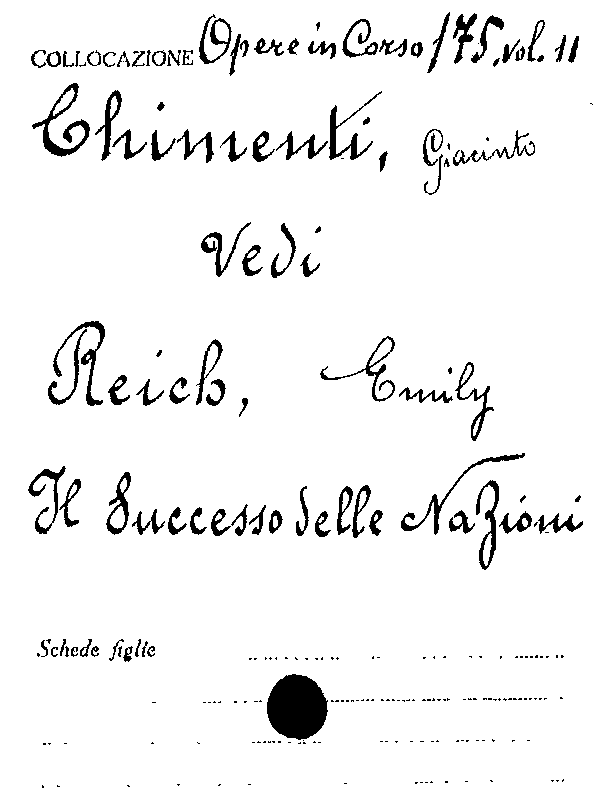 COLLOCAZIONE Opere in Corso/75, vol. 11
Chimenti, Giacinto
Vedi
Reich, Emily
Il Successo delle Nazioni
Schede figlie